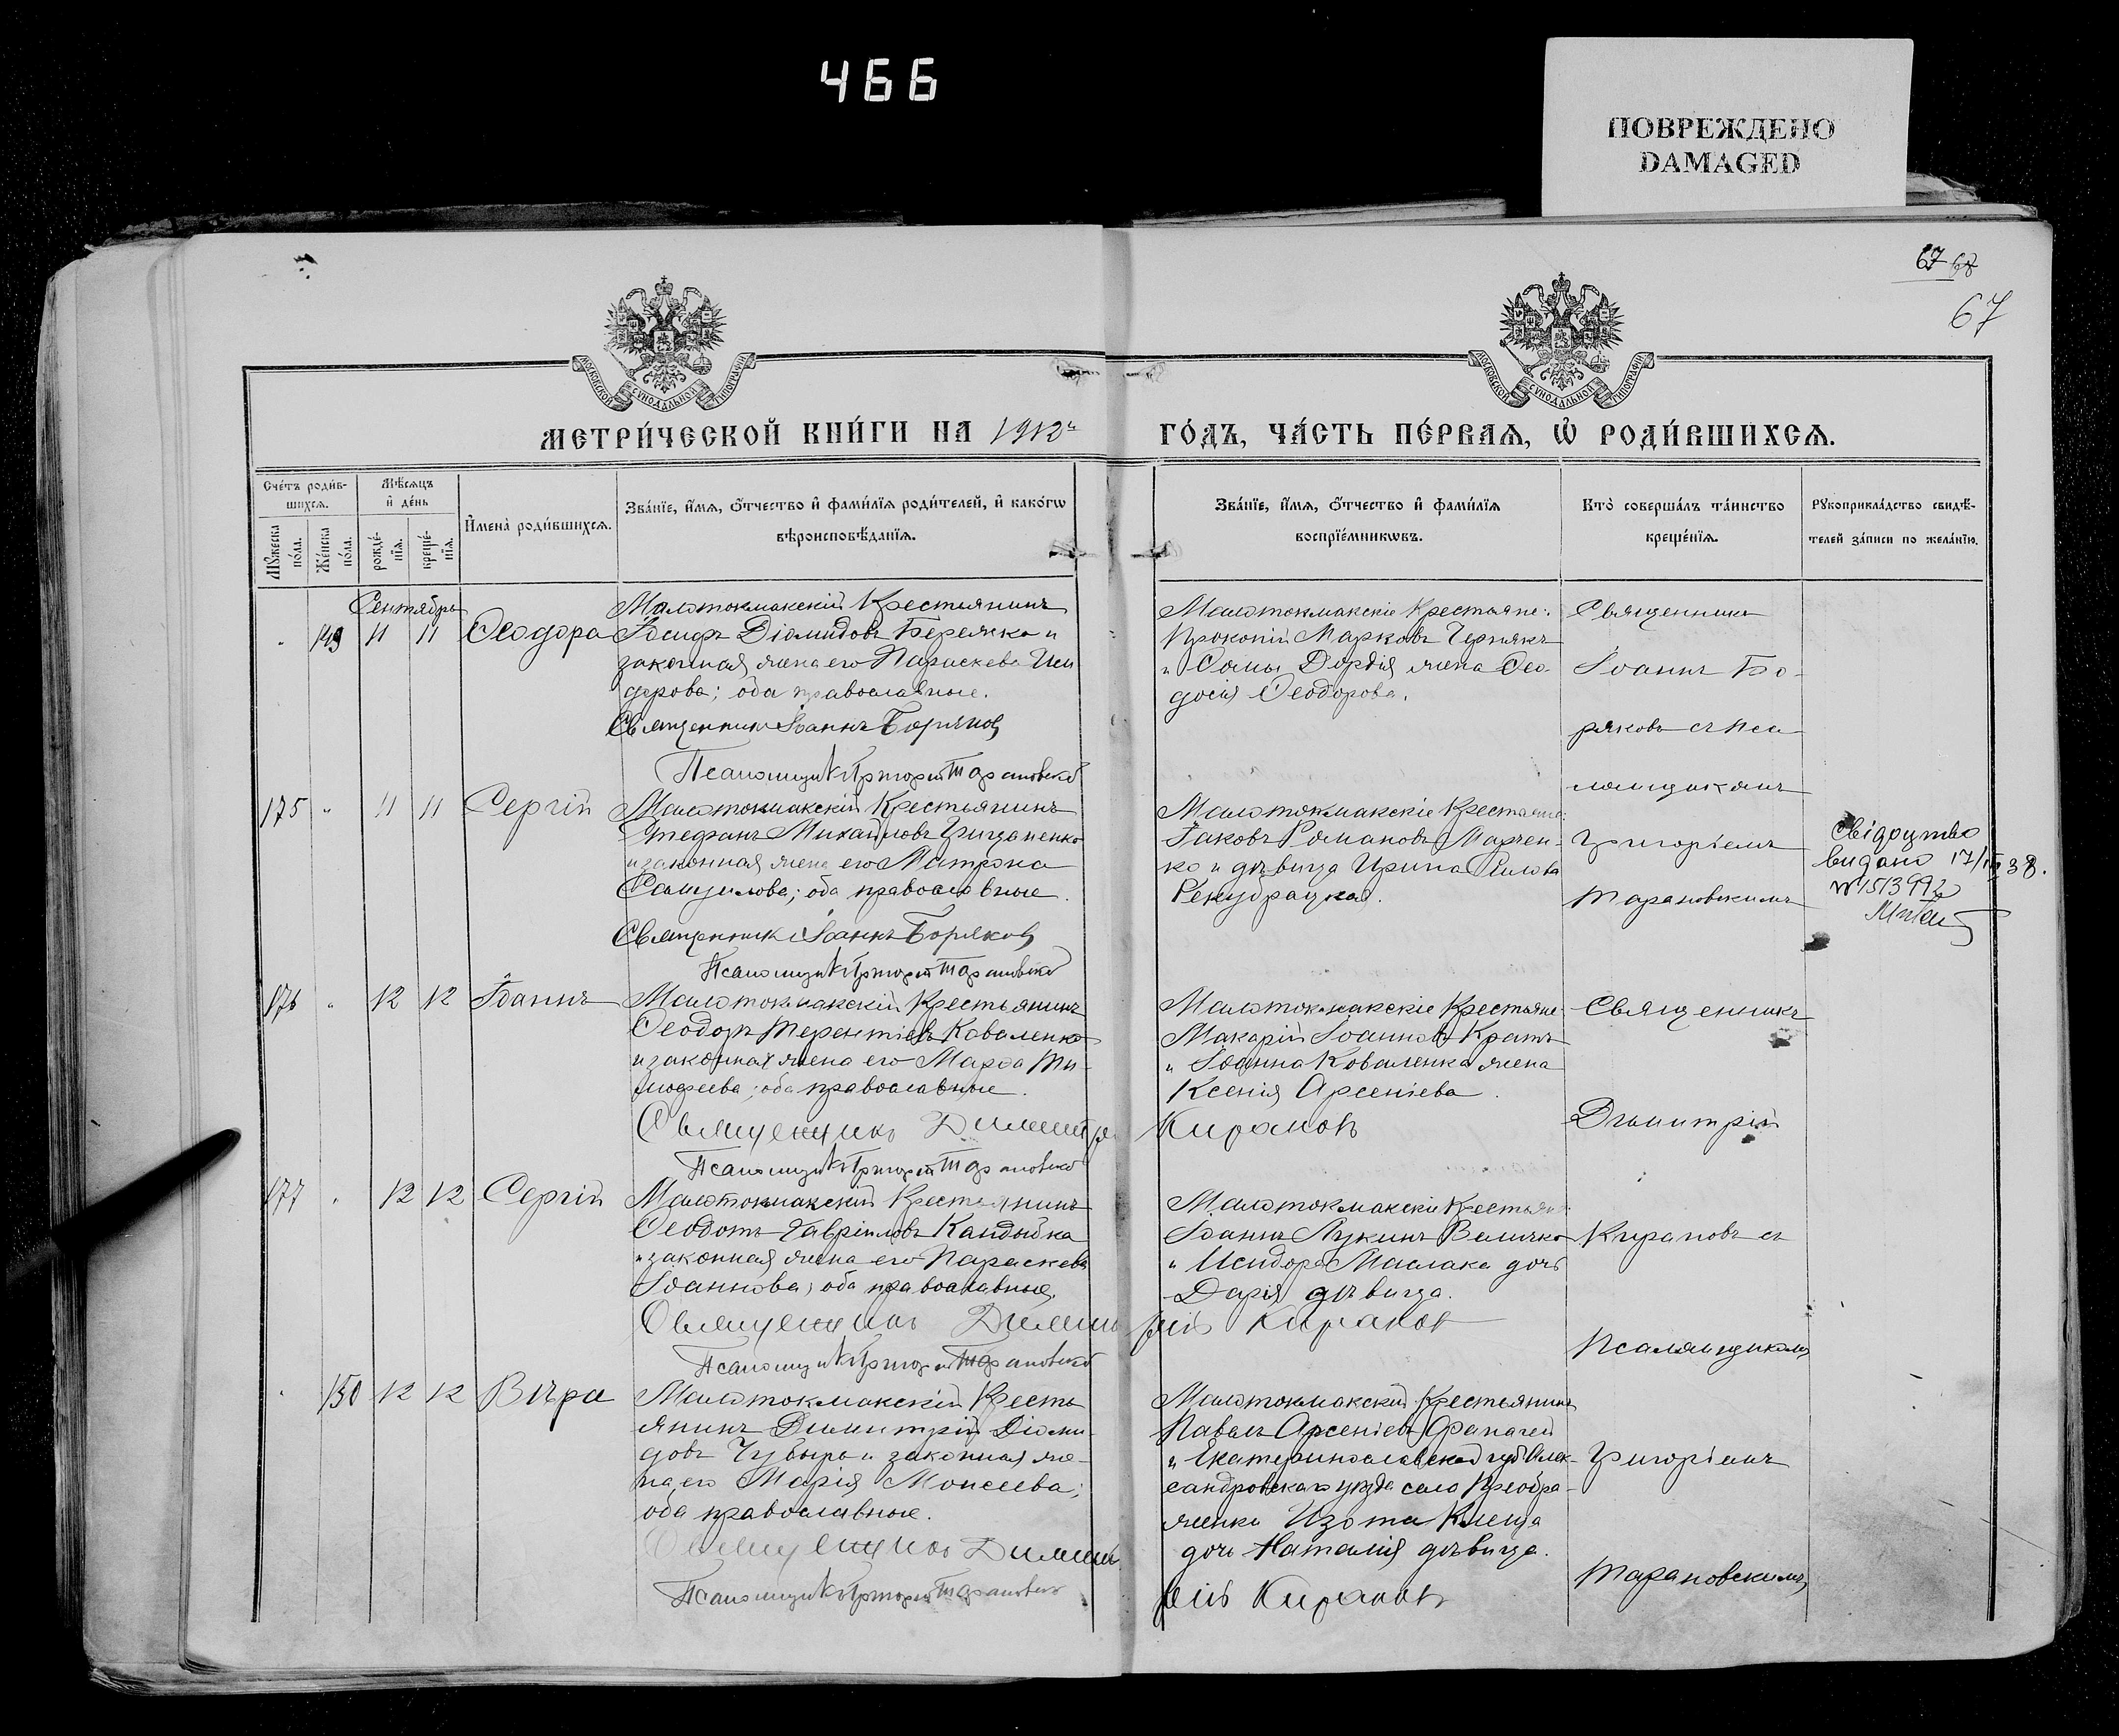 466
ПОВРЕЖДЕНО
DAMAGED
67 68
67
МОСКОВСКОЙ СѴНОДАЛЬНОЙ ТИПОГРАФІИ
МОСКОВСКОЙ СѴНОДАЛЬНОЙ ТИПОГРАФІИ
МЕТРИ́ЧЕСКОЙ КНИ́ГИ НА 1912 ГО́ДЪ, ЧА́СТЬ ПЕ́РВАѦ, Ѡ҆ РОДИ́ВШИХСѦ.
Сче́тъ роди́в-
шихсѧ.
Мꙋ́жеска по́ла.
Же́нска по́ла.
Мѣ́сѧцъ и҆ де́нь
рожде́-нїѧ.
креще́-нїѧ.
И҆мена̀ роди́вшихсѧ.
Зва́нїе, и҆́мѧ, ѻ҆́тчество и҆ фами́лїѧ роди́телей, и҆ како́гѡ
вѣроисповѣ́данїѧ.
Зва́нїе, и҆́мѧ, ѻ҆́тчество и҆ фами́лїѧ
воспрїе́мникѡвъ.
Кто̀ соверша́лъ та́инство
креще́нїѧ.
Рꙋкоприкла́дство свидѣ́-
телей за́писи по жела́нїю.
Сентябрь
149 11 11 Ѳеодора
Малотокмакскій Крестьянинъ
Іосифъ Діомидовъ Бережко и
законная жена его Параскева Иси
дорова; оба православные.
Священникъ Іоаннъ Боряковъ
Псаломщикъ Григорій Тарановскій
Малотокмакскіе Крестьяне:
Прокопій Марковъ Чернякъ
и Ѳомы Дордія жена Ѳео-
досія Ѳеодорова.
Священникъ
Іоаннъ Бо-
ряковъ съ Пса
ломщикомъ
Григоріемъ
Тарановскимъ
175 " 11 11 Сергій
Малотокмакскій Крестьянинъ
Стефанъ Михайловъ Грицаненко
и законная жена его Матрона
Самуилова; оба православные.
Священникъ Іоаннъ Боряковъ
Псаломщикъ Григорій Тарановскій
Малотокмакскіе Крестьяне:
Іаковъ Романовъ Марчен-
ко и дѣвица Ирина
Свідоцтво
видано 17/III 38.
№ 1513992
176 " 12 12 Іоаннъ
Малотокмакскій Крестьянинъ
Ѳеодоръ Терентіевъ Коваленко
и законная жена его Марѳа Ти-
моѳеева; оба православные.
Священникъ Димитрій Кираковъ
Псаломщикъ Григорій Тарановскій
Малотокмакскіе Крестьяне
Макарій Іоанновъ Кратъ
и Іоанна Коваленка жена
Ксенія Арсеніева.
Священникъ
Димитрій
Кираковъ съ
Псаломщикомъ
Григоріемъ
Тарановскимъ
177 " 12 12 Сергій
Малотокмакскій Крестьянинъ
Ѳеодотъ Гавріиловъ Кандыбка
и законная жена его Параскева
Іоаннова; оба православные.
Священникъ Димитрій Кираковъ
Псаломщикъ Григорій Тарановскій
Малотокмакскіе Крестьяне
Іоаннъ Лукинъ Величко
и Исидора Маслака дочь
Дарія дѣвица.
150 12 12 Вѣра
Малотокмакскій Кресть
янинъ Димитрій Діоми-
довъ Чубырь и законная же-
на его Марія Моисеева;
оба православные.
Священникъ Димитрій Кираковъ
Псаломщикъ Григорій Тарановскій
Малотокмакскій Крестьянинъ
Павелъ Арсеніевъ
и Екатеринославской губ Алек-
сандровскаго уѣзда села Преобра-
женки Изота Клеща
дочь Наталія дѣвица.